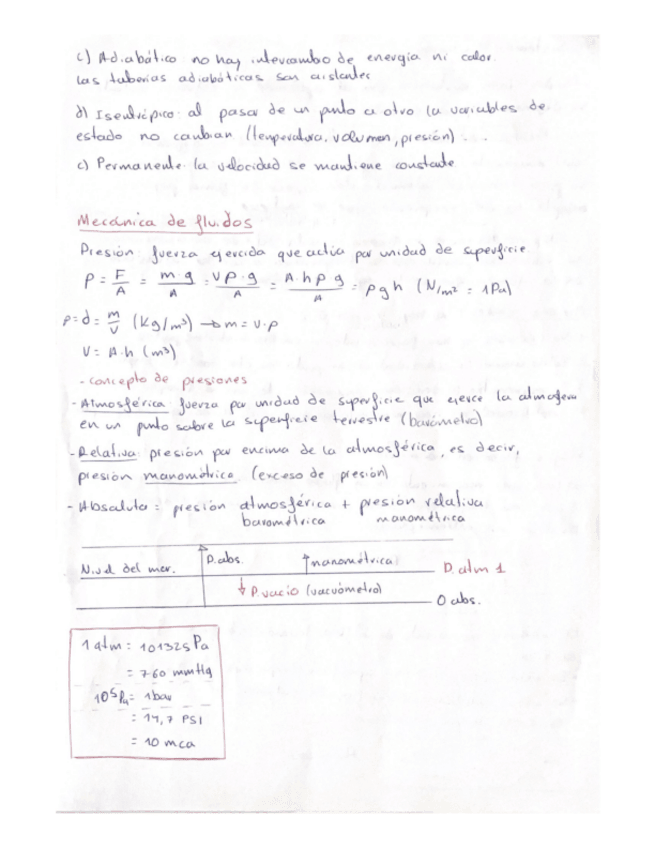 c) Adiabático: no hay intercambo de energía ni calor.
Las tuberias adiabáticas son aislantes
d) Isentrópico: al pasar de un punto a otro la variables de
estado no cambian (temperatura, volumen, presión)...
c) Permanente: la velocidad se mantiene constante
Mecánica de fluidos
Presión: fuerza ejercida que actúa por unidad de superficie
P = F/A = m·g/A = Vρ·g/A = A·hρg/A = ρgh (N/m² = 1Pa)
ρ=d= m/V (Kg/m³) → m = V·ρ
V= A·h (m³)
- concepto de presiones
- Atmosférica: fuerza por unidad de superficie que ejerce la atmosfera
en un punto sobre la superficie terrestre (barómetro)
- Relativa: presión por encima de la atmosférica, es decir,
presión manométrica (exceso de presión)
- Absoluta = presión atmosférica + presión relativa
barométrica manométrica
Nivel del mar. P.abs. ↑manométrica P. atm 1
↓ P.vacio (vacuómetro) 0 abs.
1 atm = 101325 Pa
= 760 mmHg
10⁵Pa = 1bar
= 14,7 PSI
= 10 mca